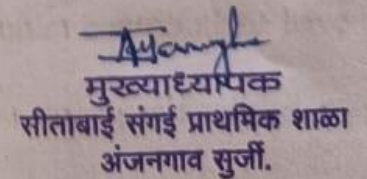 मुख्याध्यापक
सीताबाई संगई प्राथमिक शाळा
अंजनगाव सुर्जी.